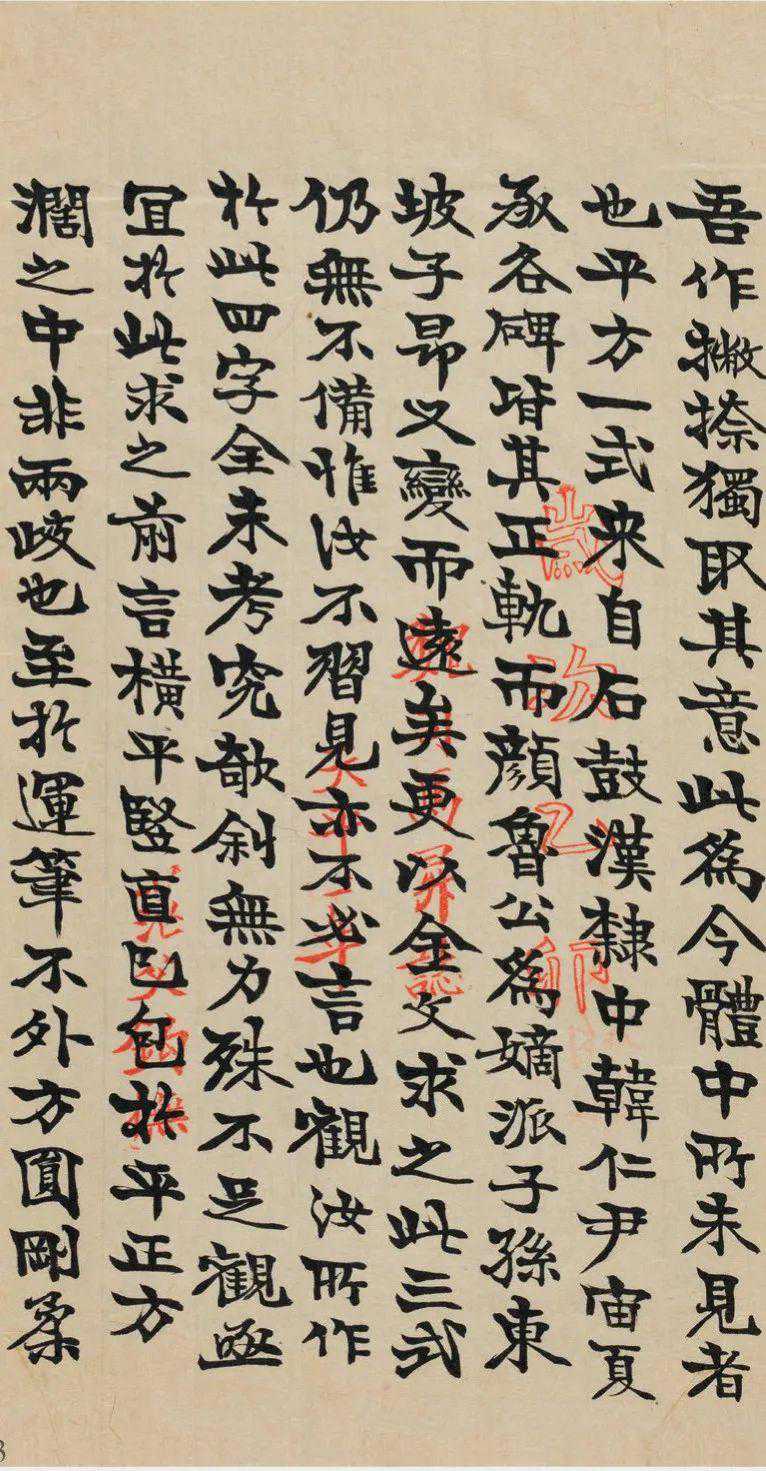 吾作撇捺獨取其意此為今體中所未見者
也平方一式来自石鼓漢隸中韓仁尹宙夏
承各碑皆其正軌而顏魯公為嫡派子孫東
坡子昂又變而遠矣更以金文求之此三式
仍無不備惟汝不習見亦不必言也觀汝所作
於此四字全未考究欹斜無力殊不足觀亟
宜於此求之前言橫平豎直已包於平正方
濶之中非兩歧也至於運筆不外方圓剛柔
歲次乙卯